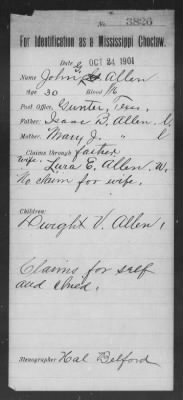 No. 3820
For Identification as a Mississippi Choctaw.
Date OCT 24 1901
Name John Allen
Age 30 Blood 1/16
Post Office, Gunter, Tex.
Father: Isaac B. Allen
Mother: Mary J. "
Claims through father
Wife: Lura E. Allen. W.
No claim for wife.
Children:
Dwight V. Allen, 1
Claims for self
and child.
Stenographer Hal Belford